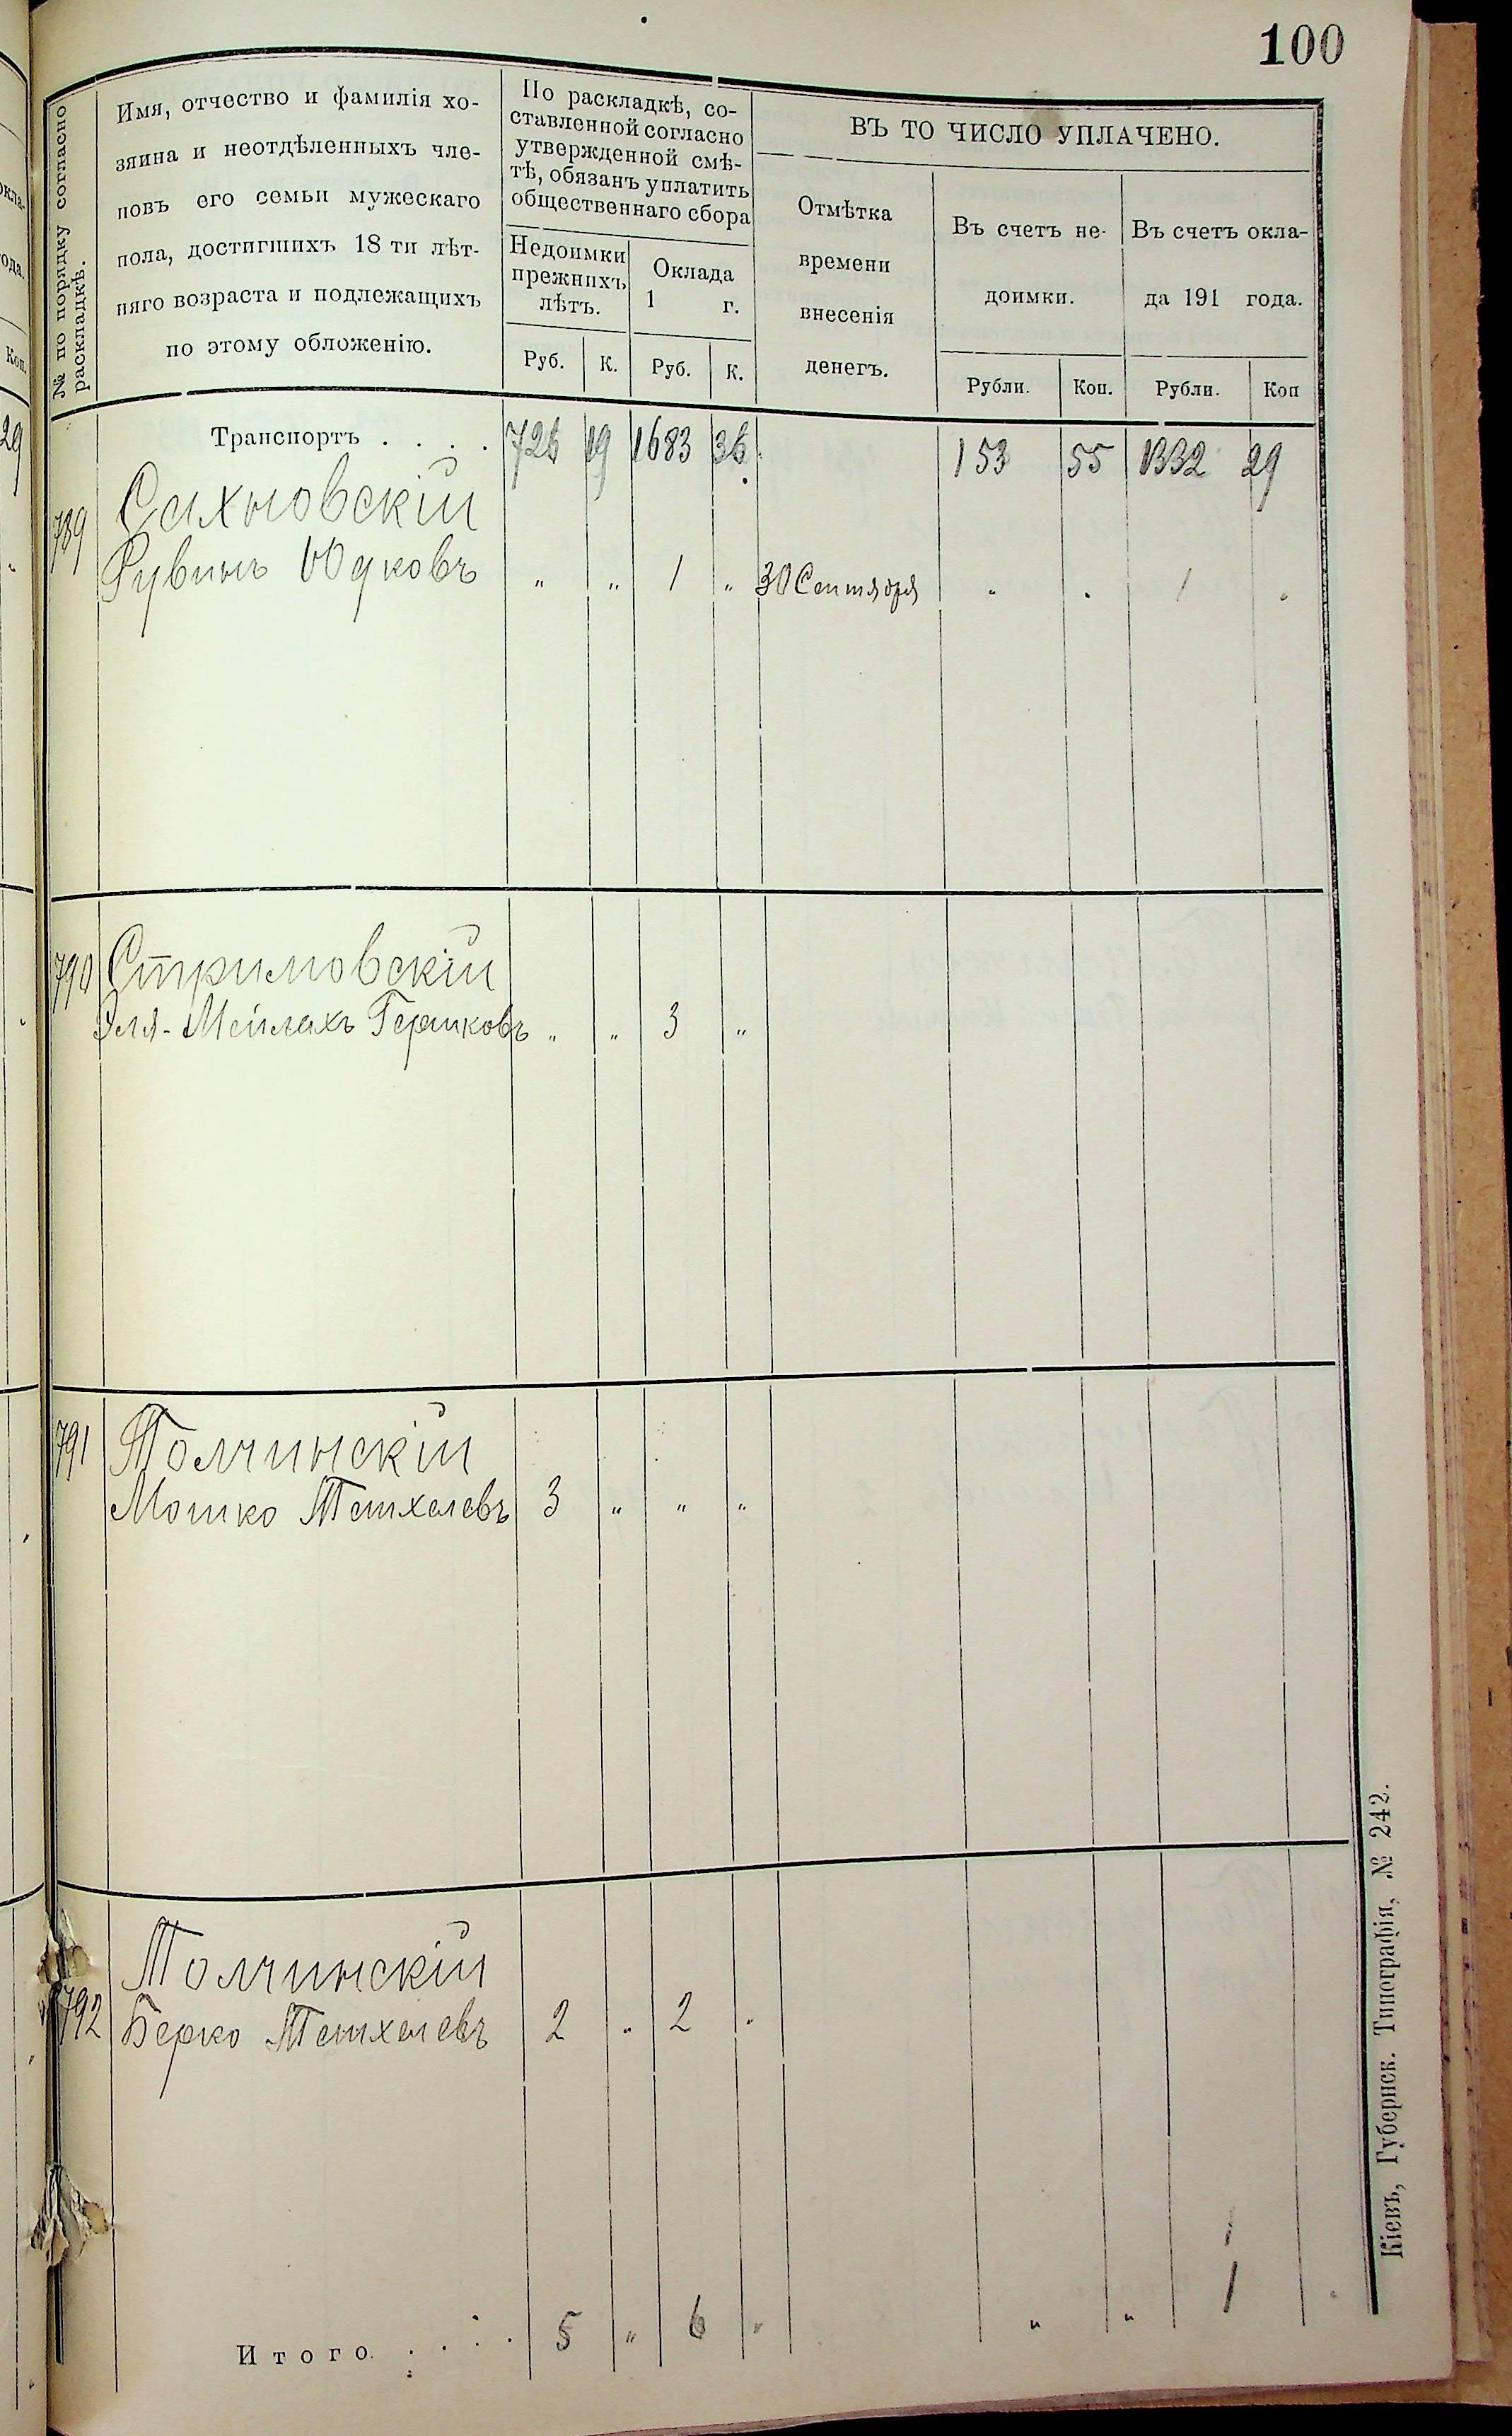 100
№ по порядку согласно
раскладкѣ.
Имя, отчество и фамилія хо-
зяина и неотдѣленныхъ чле-
новъ его семьи мужескаго
пола, достигшихъ 18 ти лѣт-
няго возраста и подлежащихъ
по этому обложенію.
По раскладкѣ, со-
ставленной согласно
утвержденной смѣ-
тѣ, обязанъ уплатить
общественнаго сбора
Недоимки
прежнихъ
лѣтъ.
Оклада
1 г.
Руб. К. Руб. К.
ВЪ ТО ЧИСЛО УПЛАЧЕНО.
Отмѣтка
времени
внесенія
денегъ.
Въ счетъ не-
доимки.
Въ счетъ окла-
да 191 года.
Рубли. Коп. Рубли. Коп
Транспортъ . . . . 726 19 1683 36 153 55 1332 29
789 Сахновскій
Рувинъ Юдковъ " " 1 " 30 Сентября " " 1 "
790 Стримовскій
Эля-Мейлахъ Гершковъ " " 3 "
791 Толчинскій
Мошко Техелевъ 3 " " "
Толчинскій
792 Берко 2 " 2 "
1
Итого . . . . 5 " 6 " " " 1
Кіевъ, Губернск. Типографія, № 242.
29
Коп.